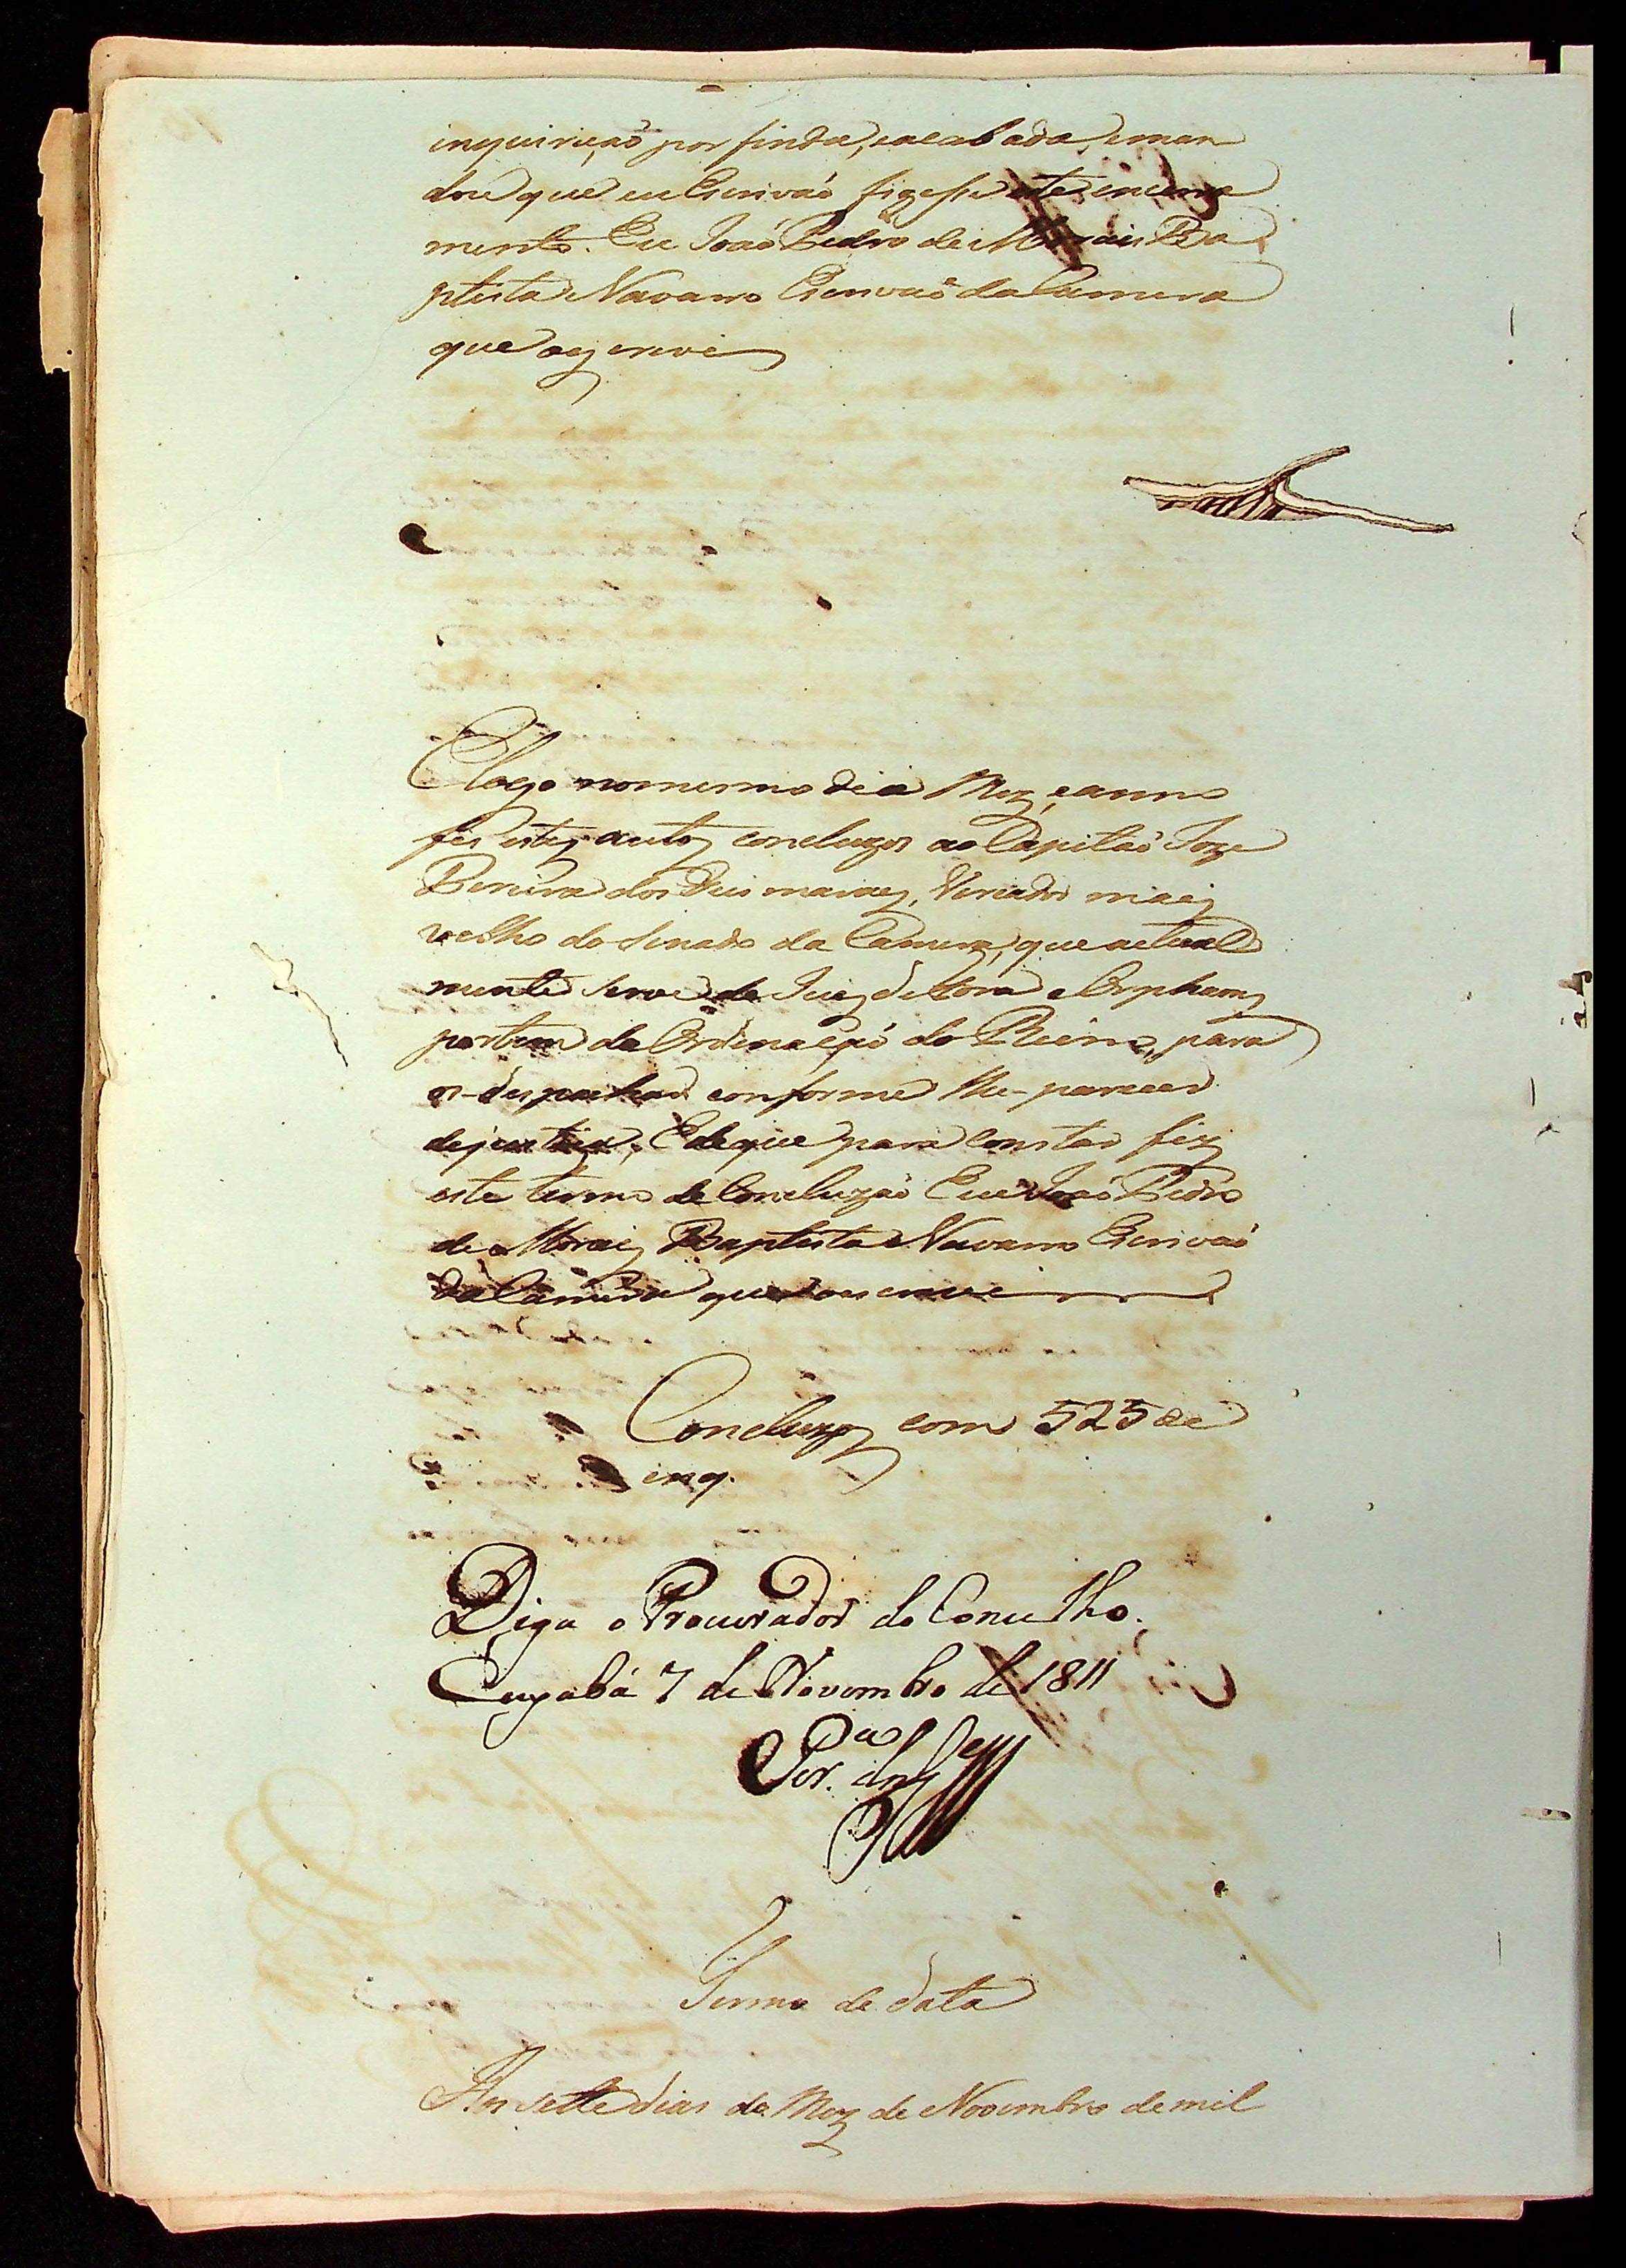 inquirição por finda, e acabada, e man
dou que eu Escrivaõ fizesse este encerra
mento. Eu Joaõ Pedro de Morais Ba
ptista Navarro Escrivaõ da Camera
que o escrevi
E logo no mesmo dia Mez, e anno
fis estes autos concluzos ao Capitaõ Joze
Pereira dos Guimaraes, Veriador mais
velho do Senado da Camera, que actual
mente serve de Juiz de Fora e Orphaons
por bem da Ordenaçaõ do Reino, para
os despachar conforme lhe parecer
de justiça; E de que para Constar fiz
este termo de Concluzaõ Eu Joaõ Pedro
de Moraes Baptista Navarro Escrivaõ
da Camera que o escrevi
Concluzos com 525 de
inq.
Diga o Procurador do Concelho.
Cuyabá 7 de Novembro de 1811
Termo de data
Aos sette dias do Mez de Novembro de mil